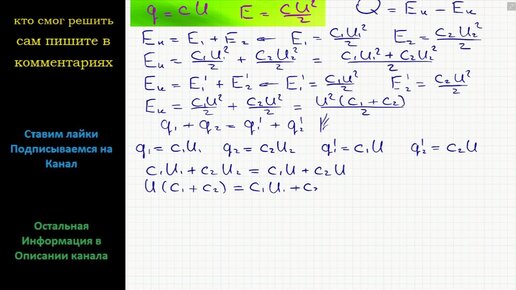 кто смог решить
сам пишите в
комментариях
Ставим лайки
Подписываемся на
Канал
Остальная
Информация в
Описании канала
q = cU E = cU²/2 Q = Eн - Eк
Eн = E₁ + E₂ ← E₁ = c₁U₁²/2 E₂ = c₂U₂²/2
Eн = c₁U₁²/2 + c₂U₂²/2 = c₁U₁² + c₂U₂²/2
Eк = E₁' + E₂' ← E₁' = c₁U²/2 E₂' = c₂U²/2
Eк = c₁U²/2 + c₂U²/2 = U²(c₁ + c₂)/2
q₁ + q₂ = q₁' + q₂'
q₁ = c₁U₁ q₂ = c₂U₂ q₁' = c₁U q₂' = c₂U
c₁U₁ + c₂U₂ = c₁U + c₂U
U(c₁ + c₂) = c₁U₁ + c₂